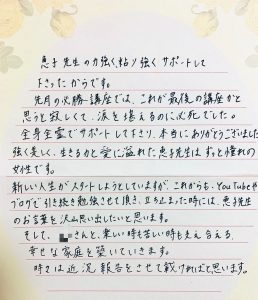 恵子先生の力強く、粘り強くサポートして
下さったからです。
先月の必勝講座では、これが最後の講座かと
思うと寂しくて、涙を堪えるのに必死でした。
全身全霊でサポートして下さり、本当にありがとうございました
強く美しく、生きる力と愛に溢れた恵子先生はずっと憧れの
女性です。
新しい人生がスタートしようとしていますが、これからも、YouTubeや
ブログで引き続き勉強させて頂き、立ち止まった時には、恵子先生
のお言葉を沢山思い出したいと思います。
そして、さんと、楽しい時も苦しい時も支え合える、
幸せな家庭を築いていきます。
時々は近況報告をさせて戴ければと思います。